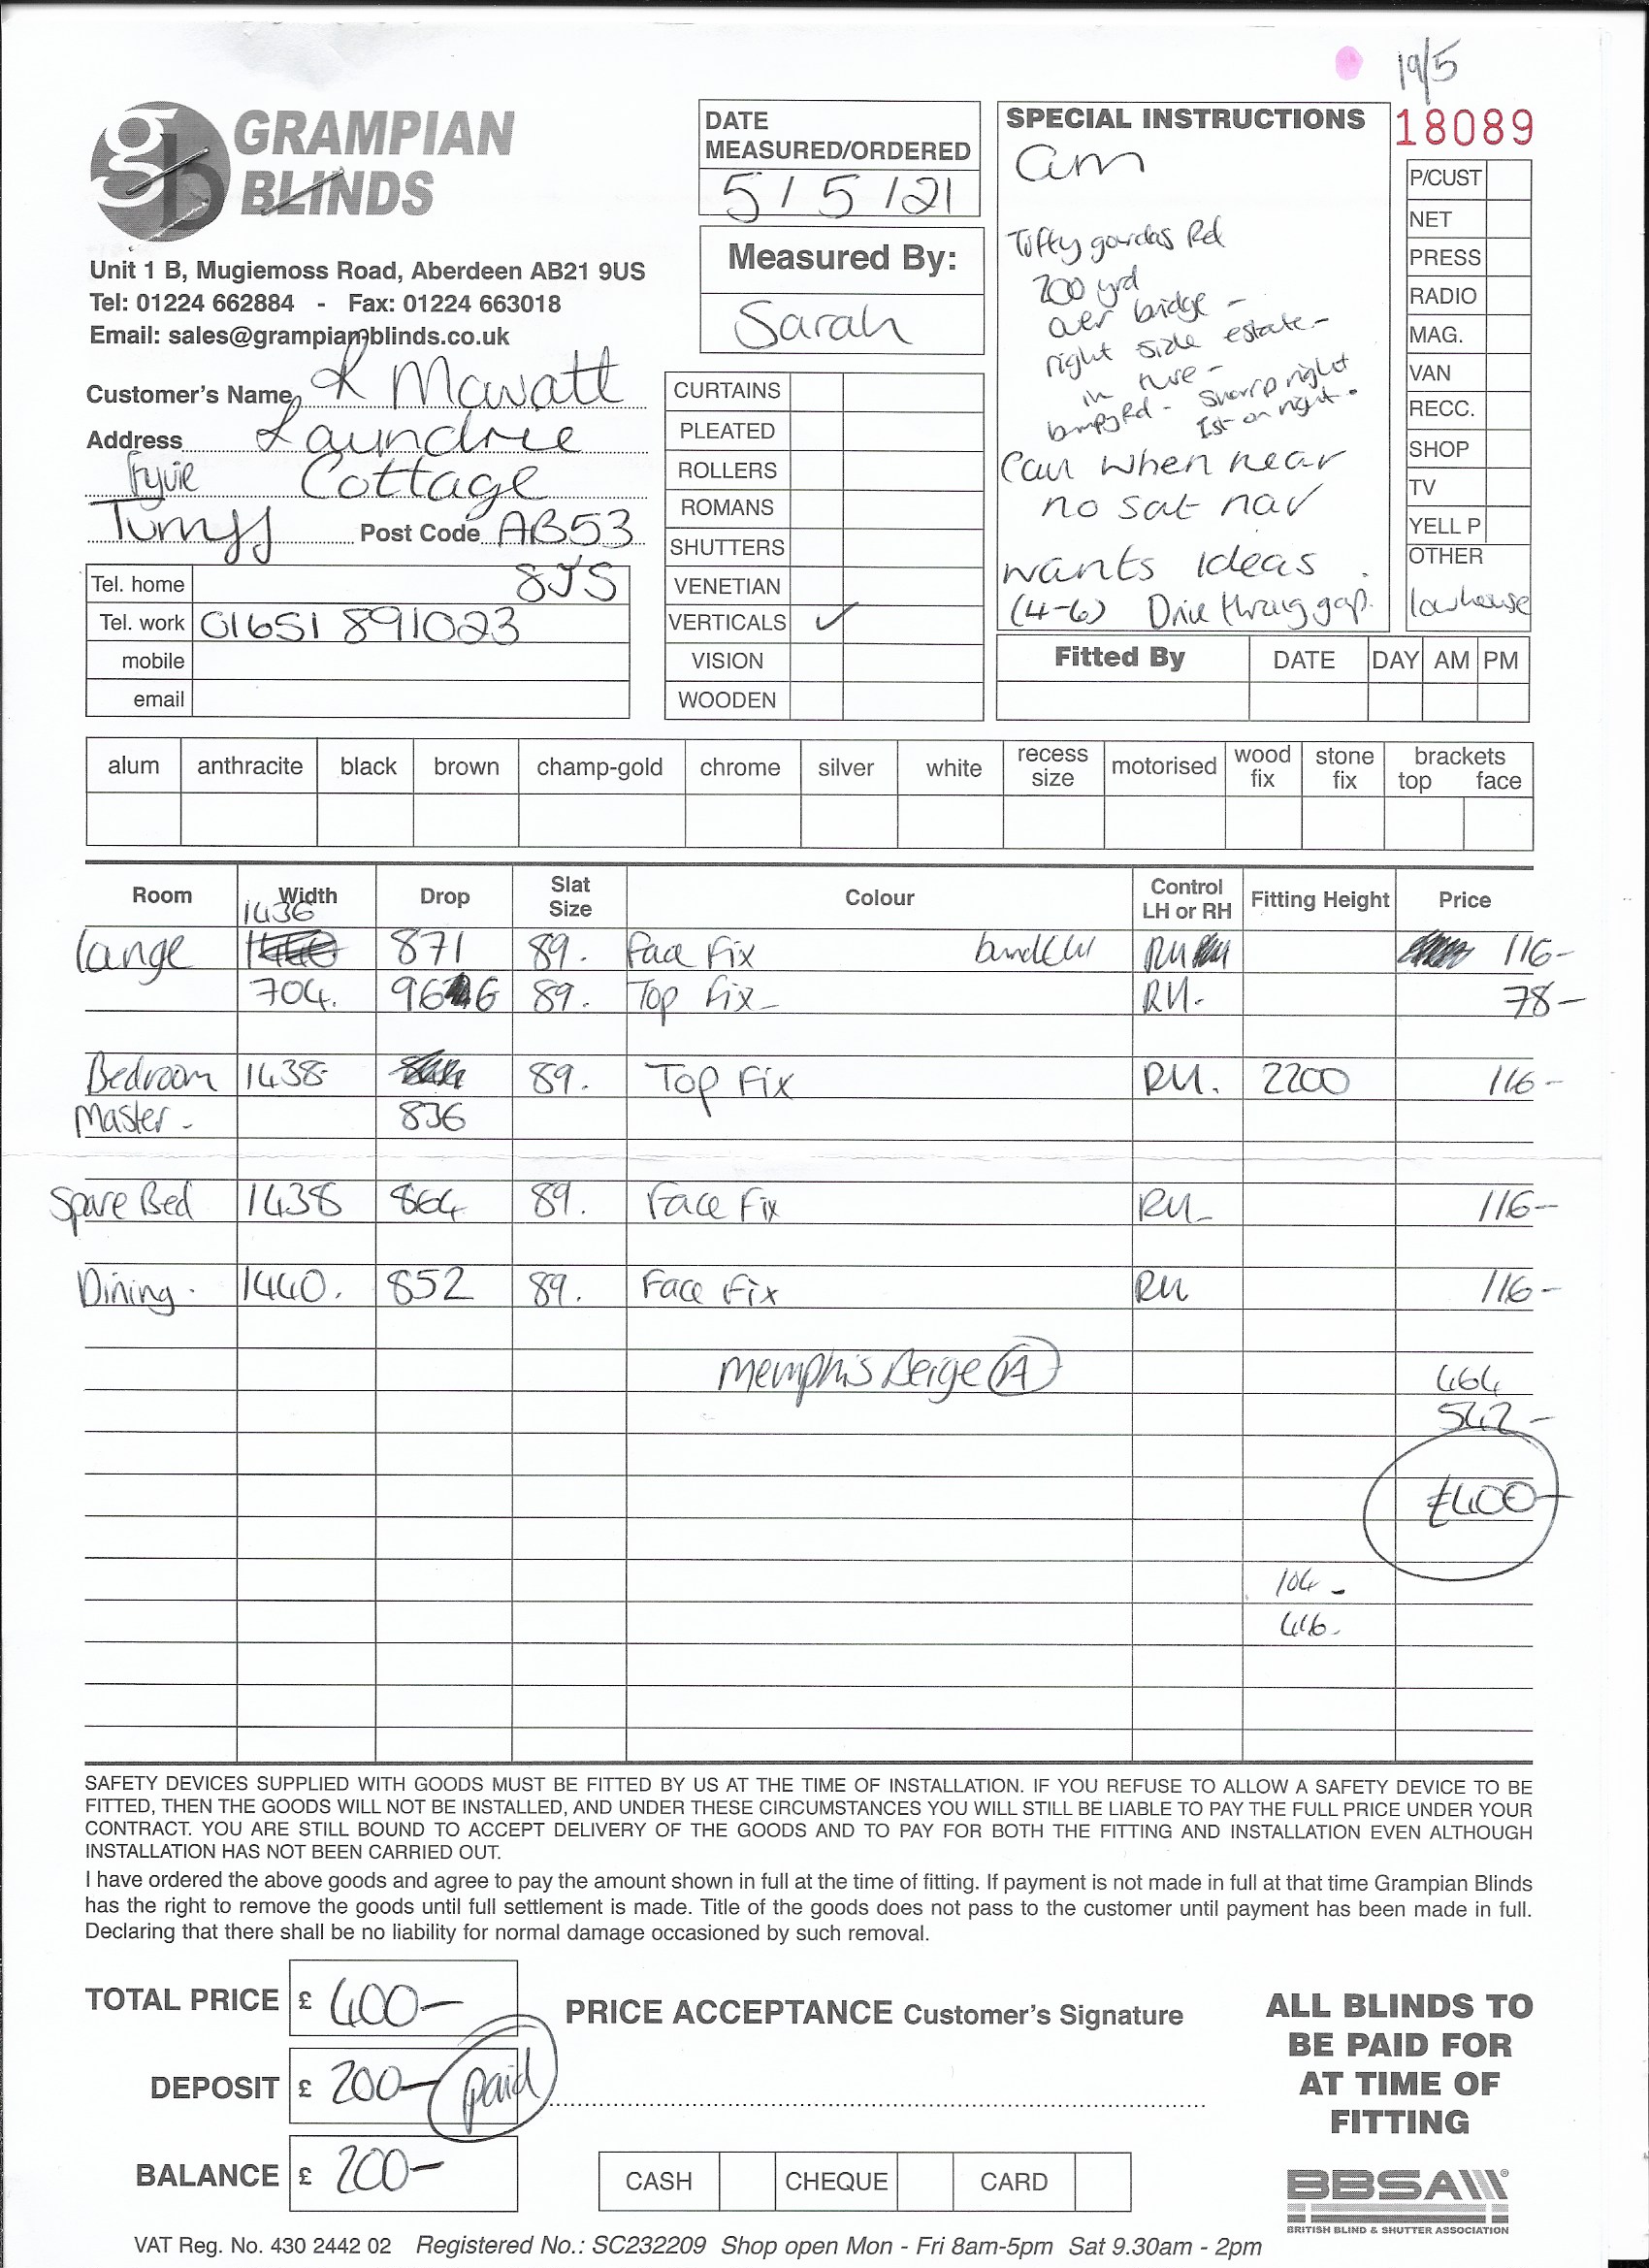 19/5
GRAMPIAN
BLINDS
gb
Unit 1 B, Mugiemoss Road, Aberdeen AB21 9US
Tel: 01224 662884 - Fax: 01224 663018
Email: sales@grampian-blinds.co.uk
Customer's Name K Mowatt
Address Laundrie
Fyvie Cottage
Turriff Post Code AB53
8JS
Tel. home
Tel. work 01651 891023
mobile
email
DATE
MEASURED/ORDERED
5/5/21
Measured By:
Sarah
CURTAINS
PLEATED
ROLLERS
ROMANS
SHUTTERS
VENETIAN
VERTICALS ✓
VISION
WOODEN
SPECIAL INSTRUCTIONS
am
Tifty Rd
200 yrd
over bridge -
right side estate -
in
bumpy Rd - sharp right
1st on right.
Call when near
no sat nav
wants ideas.
(4-6) Drive gap.
18089
P/CUST
NET
PRESS
RADIO
MAG.
VAN
RECC.
SHOP
TV
YELL P
OTHER
Fitted By DATE DAY AM PM
alum anthracite black brown champ-gold chrome silver white recess size motorised wood fix stone fix brackets top face
Room Width Drop Slat Size Colour Control LH or RH Fitting Height Price
1436
Lounge 871 89. Face Fix RH 116-
704. 966 89. Top Fix- RH. 78-
Bedroom 1438 89. Top Fix RH. 2200 116-
Master - 836
Spare Bed 1438 864 89. Face Fix RH- 116-
Dining. 1440. 852 89. Face Fix RH 116-
Memphis Beige A 464
542-
£400-
104-
416.
SAFETY DEVICES SUPPLIED WITH GOODS MUST BE FITTED BY US AT THE TIME OF INSTALLATION. IF YOU REFUSE TO ALLOW A SAFETY DEVICE TO BE
FITTED, THEN THE GOODS WILL NOT BE INSTALLED, AND UNDER THESE CIRCUMSTANCES YOU WILL STILL BE LIABLE TO PAY THE FULL PRICE UNDER YOUR
CONTRACT. YOU ARE STILL BOUND TO ACCEPT DELIVERY OF THE GOODS AND TO PAY FOR BOTH THE FITTING AND INSTALLATION EVEN ALTHOUGH
INSTALLATION HAS NOT BEEN CARRIED OUT.
I have ordered the above goods and agree to pay the amount shown in full at the time of fitting. If payment is not made in full at that time Grampian Blinds
has the right to remove the goods until full settlement is made. Title of the goods does not pass to the customer until payment has been made in full.
Declaring that there shall be no liability for normal damage occasioned by such removal.
TOTAL PRICE £ 400-
DEPOSIT £ 200- paid
BALANCE £ 200-
PRICE ACCEPTANCE Customer's Signature
CASH CHEQUE CARD
ALL BLINDS TO
BE PAID FOR
AT TIME OF
FITTING
BBSA
BRITISH BLIND & SHUTTER ASSOCIATION
VAT Reg. No. 430 2442 02 Registered No.: SC232209 Shop open Mon - Fri 8am-5pm Sat 9.30am - 2pm